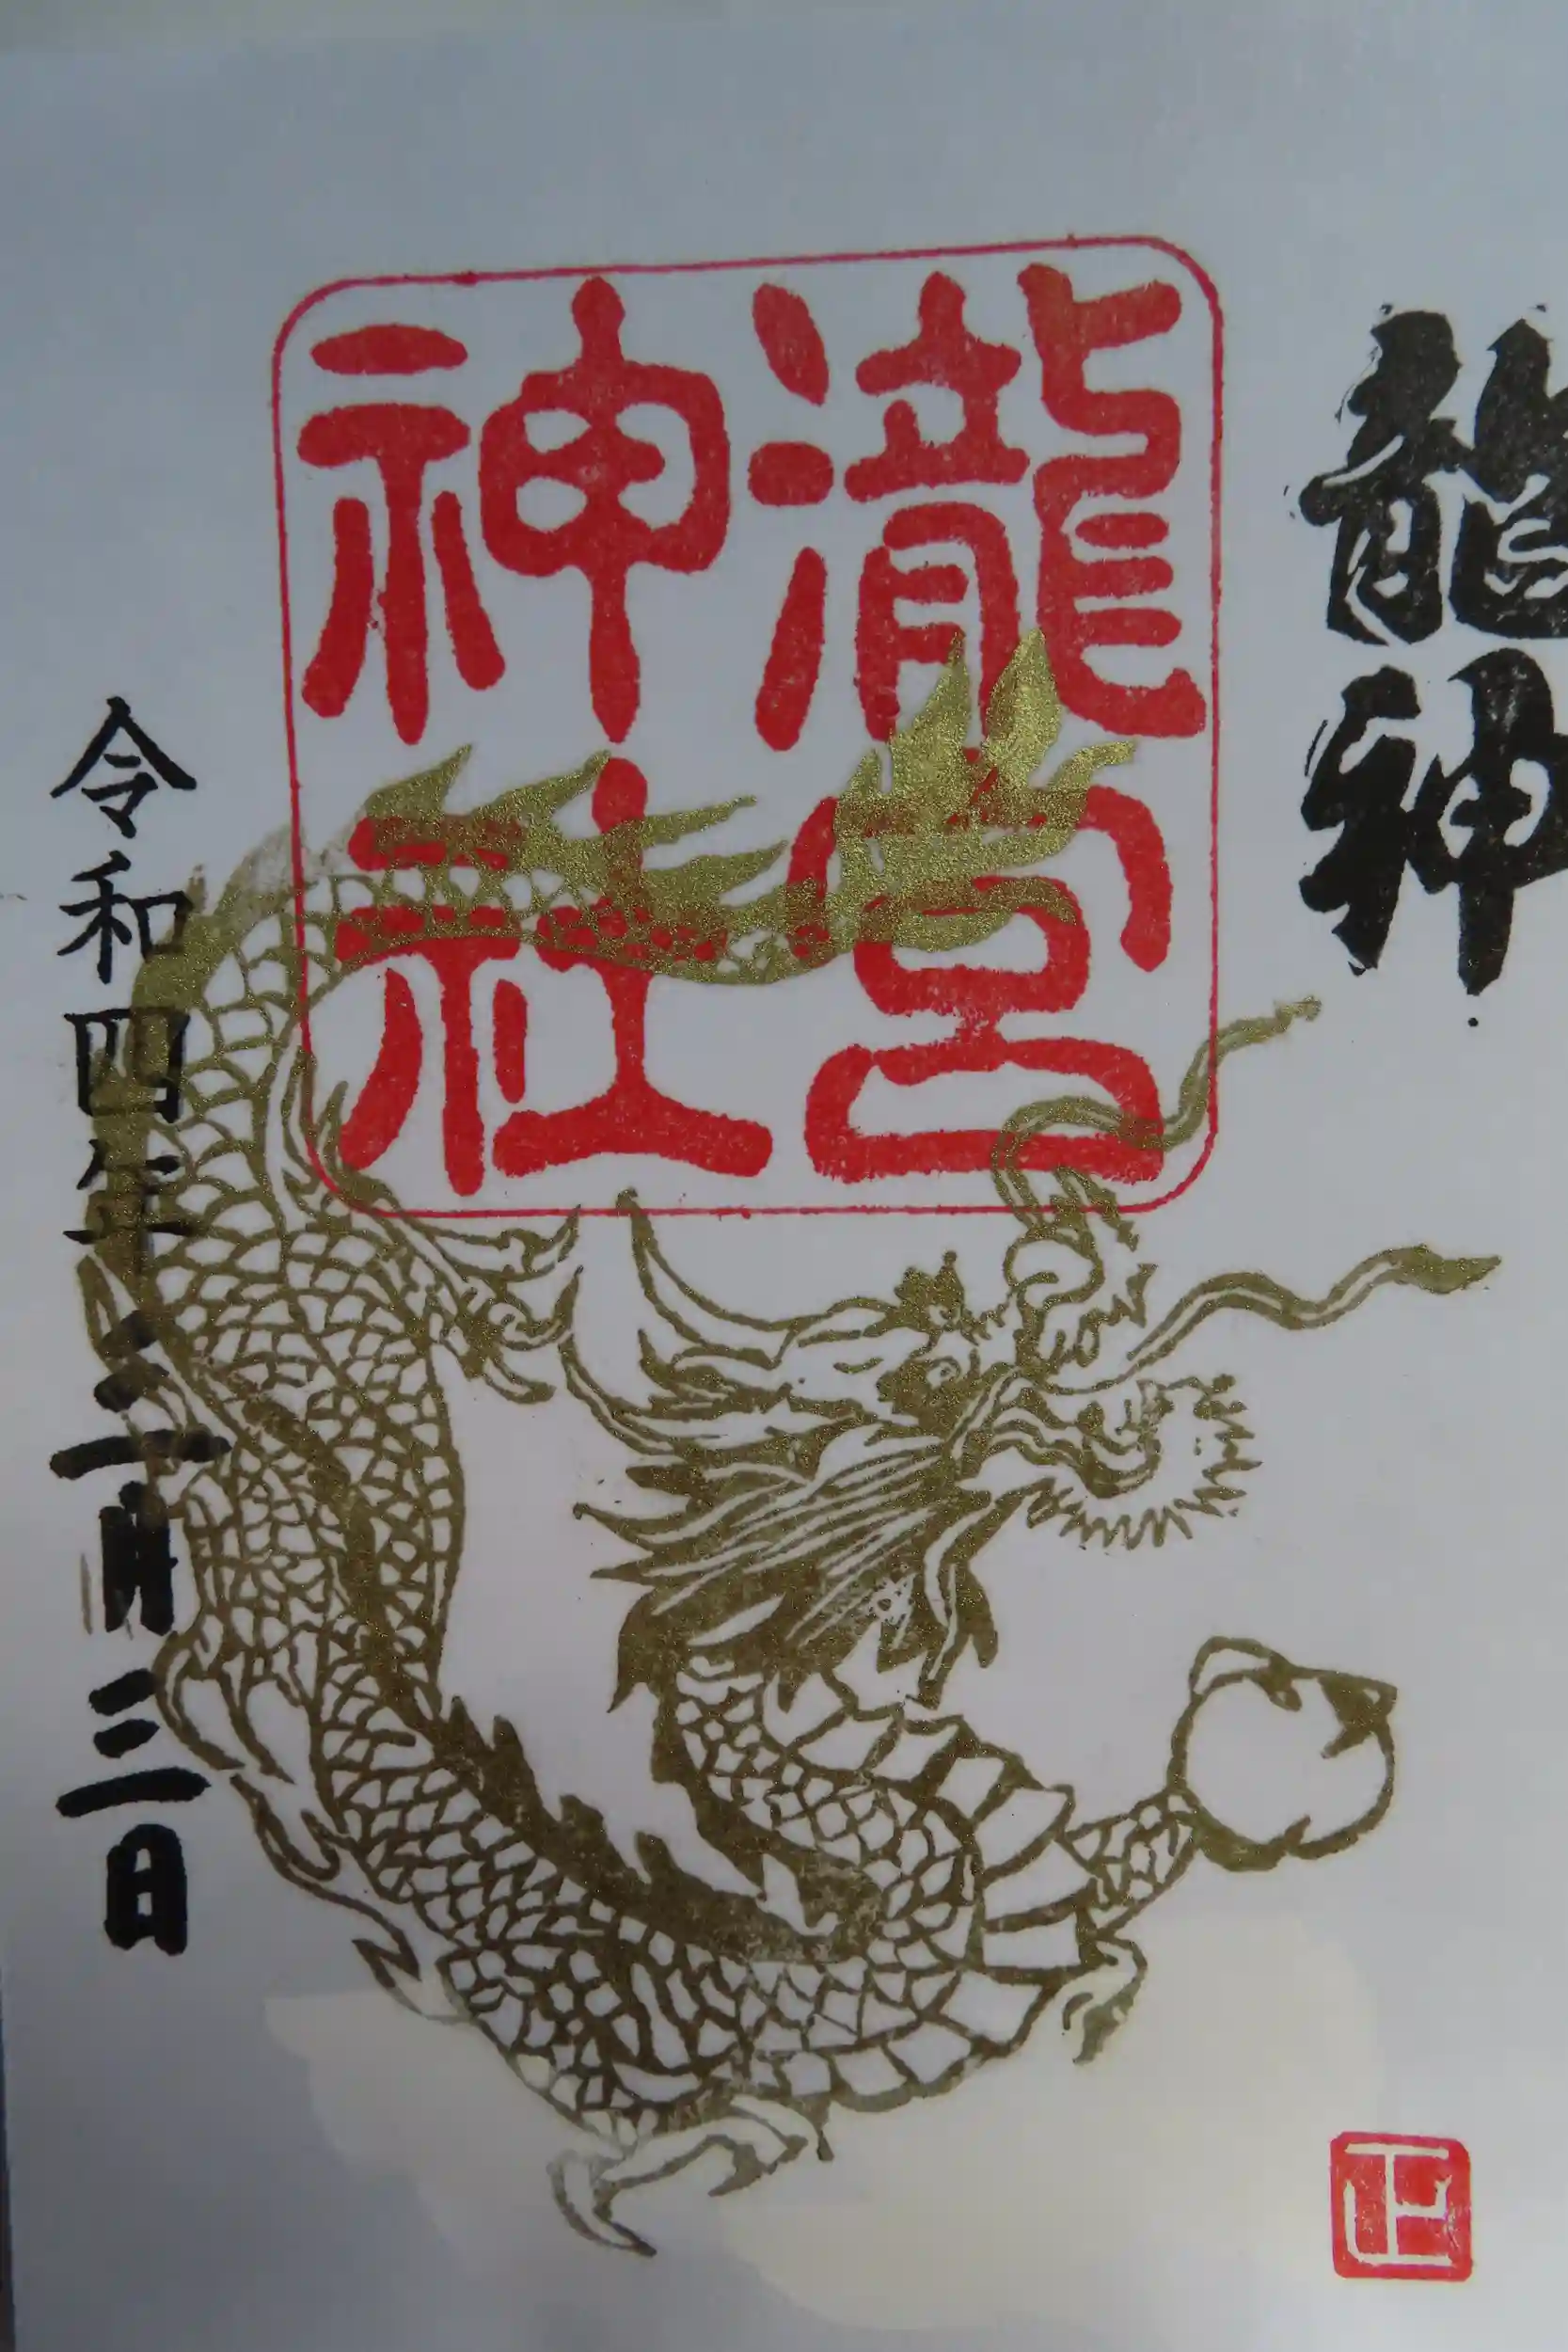 龍神
瀧宮
神社
令和四年三月三日
正